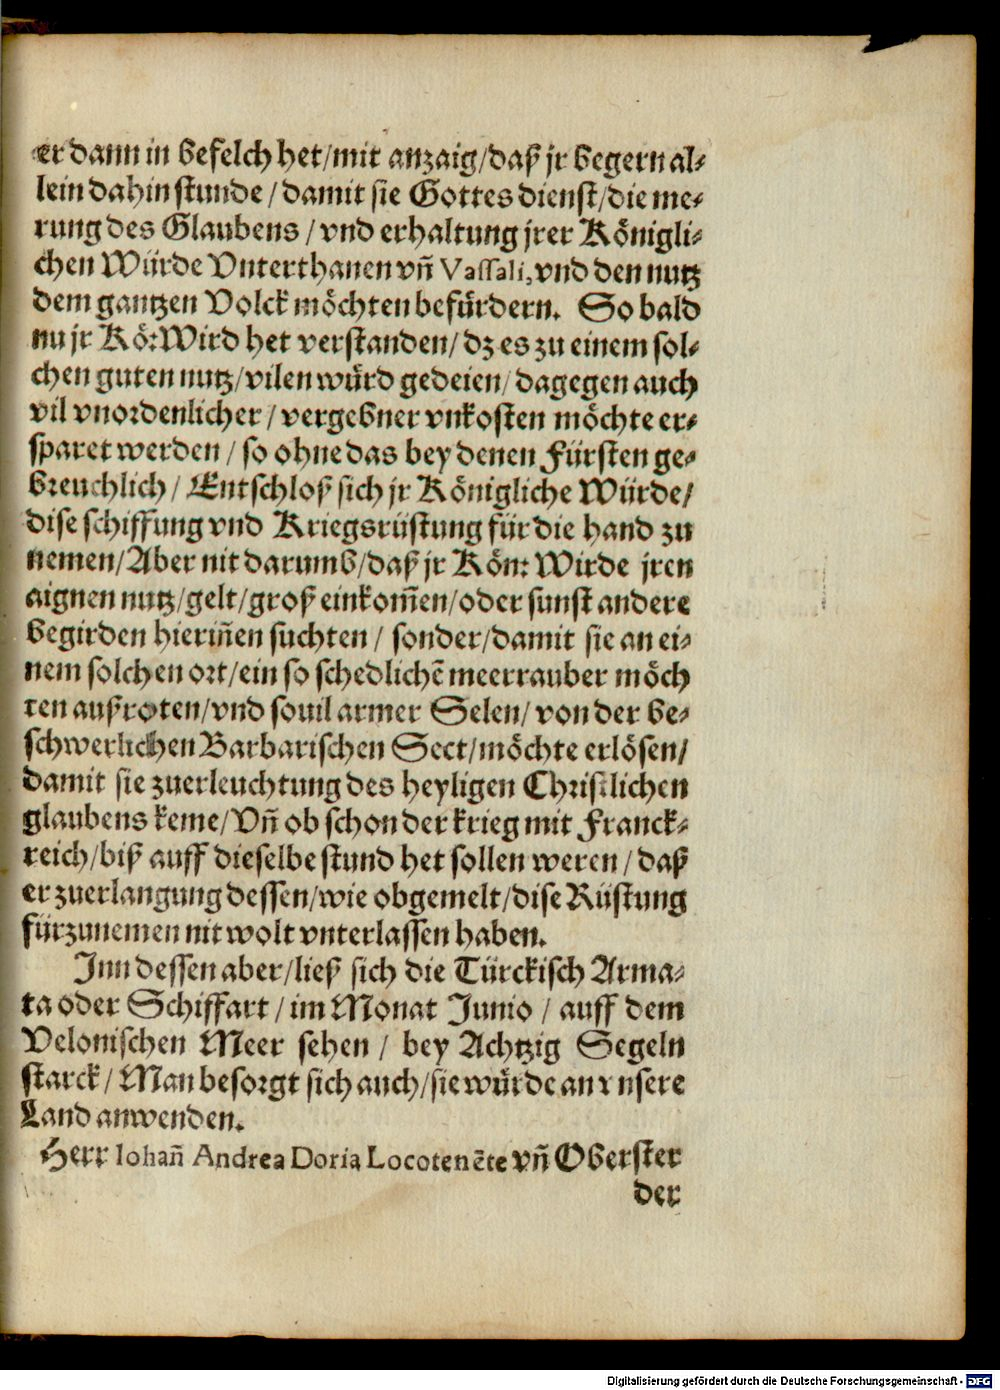 er dann in befelch het/mit anzaig/daß jr begern al-
lein dahin stunde/damit sie Gottes dienst/die me-
rung des Glaubens/vnd erhaltung jrer Königli-
chen Würde Vnterthanen vñ Vassali, vnd den nutz
dem gantzen Volck möchten befürdern. So bald
nu jr Kö: Wird het verstanden/dz es zu einem sol-
chen guten nutz/vilen würd gedeien/dagegen auch
vil vnordenlicher/vergebner vnkosten möchte er-
sparet werden/so ohne das bey denen Fürsten ge-
breuchlich/Entschloß sich jr Königliche Würde/
dise schiffung vnd Kriegsrüstung für die hand zu
nemen/Aber nit darumb/daß jr Kön: Wirde jren
aignen nutz/gelt/groß einkom̃en/oder sunst andere
begirden hieriñen suchten/sonder/damit sie an ei-
nem solchen ort/ein so schedlichẽ meerrauber möch
ten außroten/vnd souil armer Selen/von der be-
schwerlichen Barbarischen Sect/möchte erlösen/
damit sie zuerleuchtung des heyligen Christlichen
glaubens keme/Vñ ob schon der krieg mit Franck-
reich/biß auff dieselbe stund het sollen weren/daß
er zuerlangung dessen/wie obgemelt/dise Rüstung
fürzunemen nit wolt vnterlassen haben.
Inn dessen aber/ließ sich die Türckisch Arma-
ta oder Schiffart/im Monat Junio/auff dem
Velonischen Meer sehen/bey Achtzig Segeln
starck/Man besorgt sich auch/sie würde an vnsere
Land anwenden.
Herr Iohañ Andrea Doria Locotenẽte vñ Oberster
der
Digitalisierung gefördert durch die Deutsche Forschungsgemeinschaft - DFG